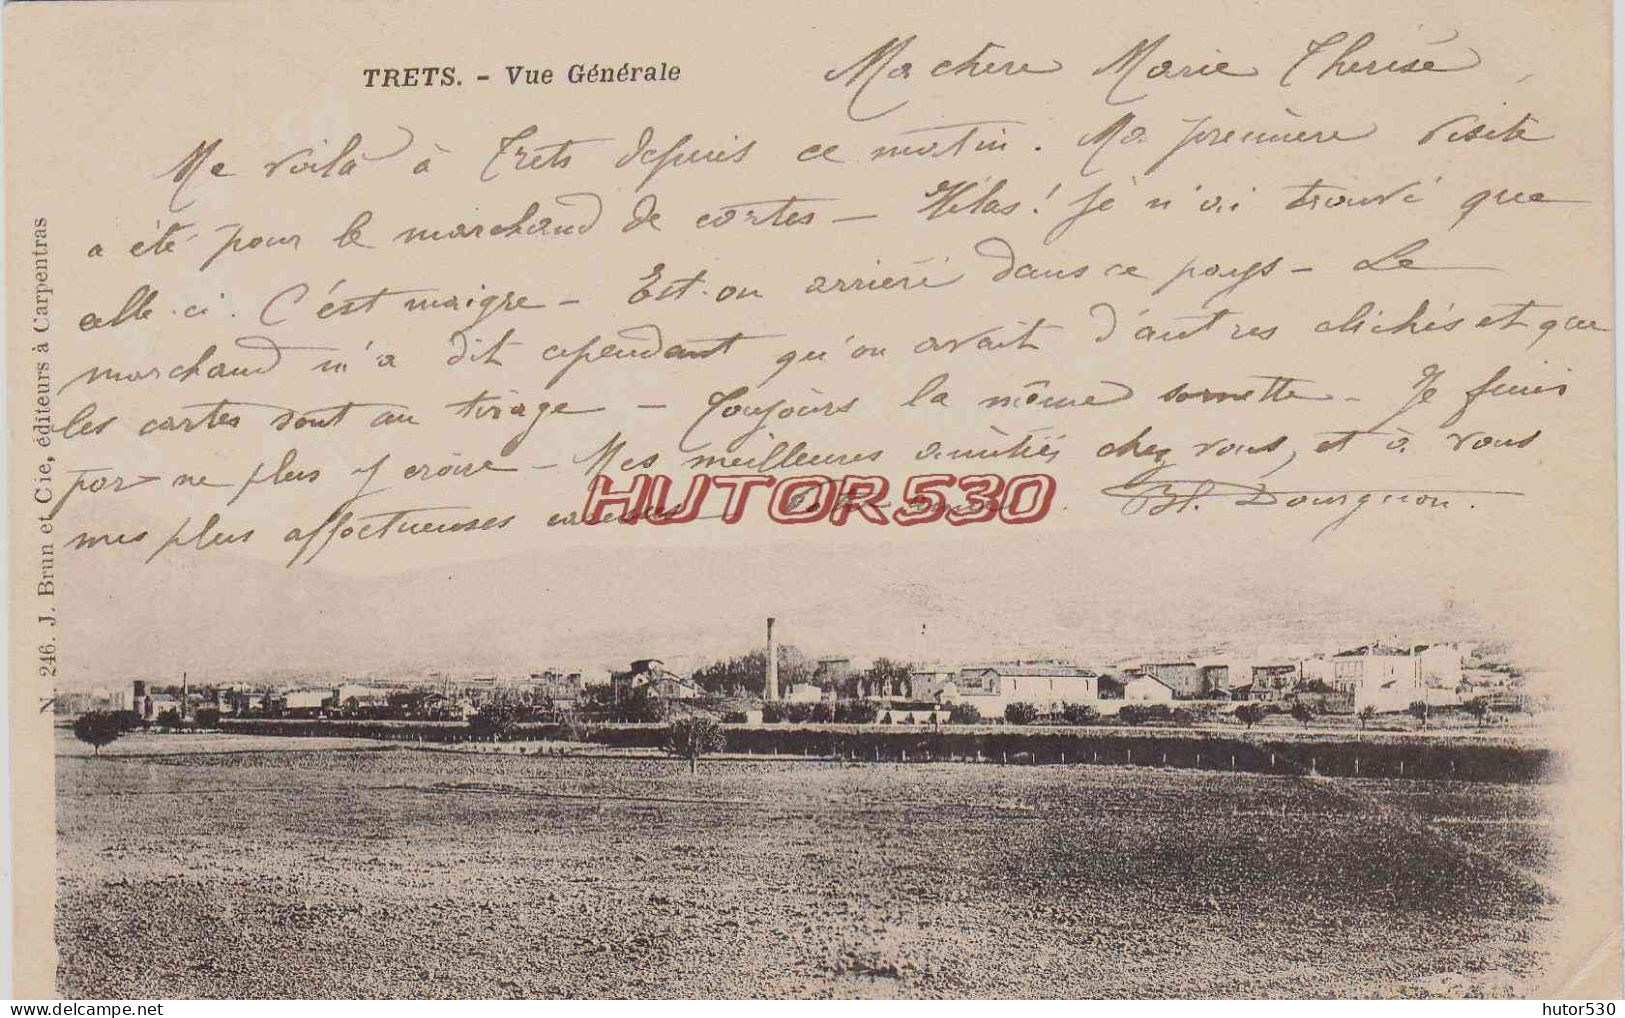 TRETS. - Vue Générale
Ma chère Marie Thérèse,
Me voilà à Trets depuis ce matin. Ma première visite
a été pour le marchand de cartes - Hélas! je n'ai trouvé que
celle-ci. C'est maigre - Est-on arriéré dans ce pays - Le
marchand m'a dit cependant qu'on avait d'autres clichés et que
les cartes sont au tirage - Toujours la même sornette - Je finis
par ne plus y croire - Mes meilleures amitiés chez vous, et à vous
mes plus affectueuses caresses
Bl. Dourgnon.
N. 246. J. Brun et Cie, éditeurs à Carpentras
HUTOR530
hutor530